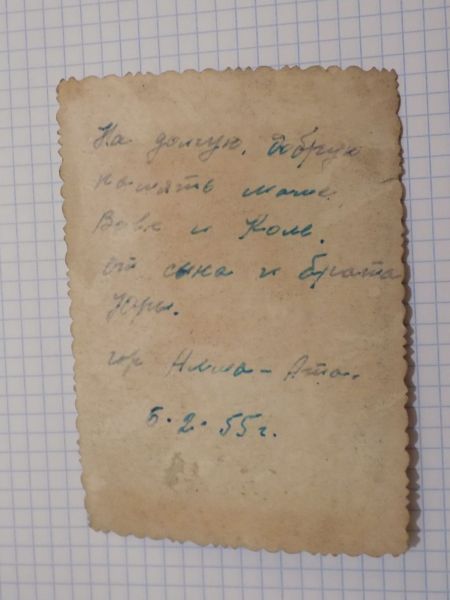 На долгую, добрую
память маме
Вове и Коле.
от сына и брата
Юры.
гор Алма-Ата.
5.2.55г.